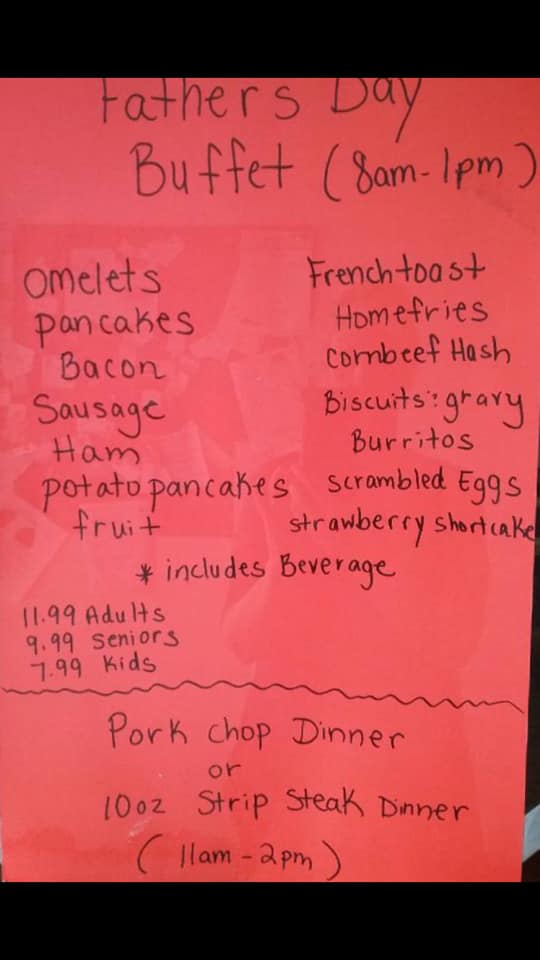 Fathers Day
Buffet (8am-1pm)
Omelets
pancakes
Bacon
Sausage
Ham
potato pancakes
fruit
French toast
Homefries
cornbeef Hash
Biscuits: gravy
Burritos
scrambled Eggs
strawberry shortcake
* includes Beverage
11.99 Adults
9.99 Seniors
7.99 Kids
Pork chop Dinner
or
10oz Strip Steak Dinner
(11am-2pm)